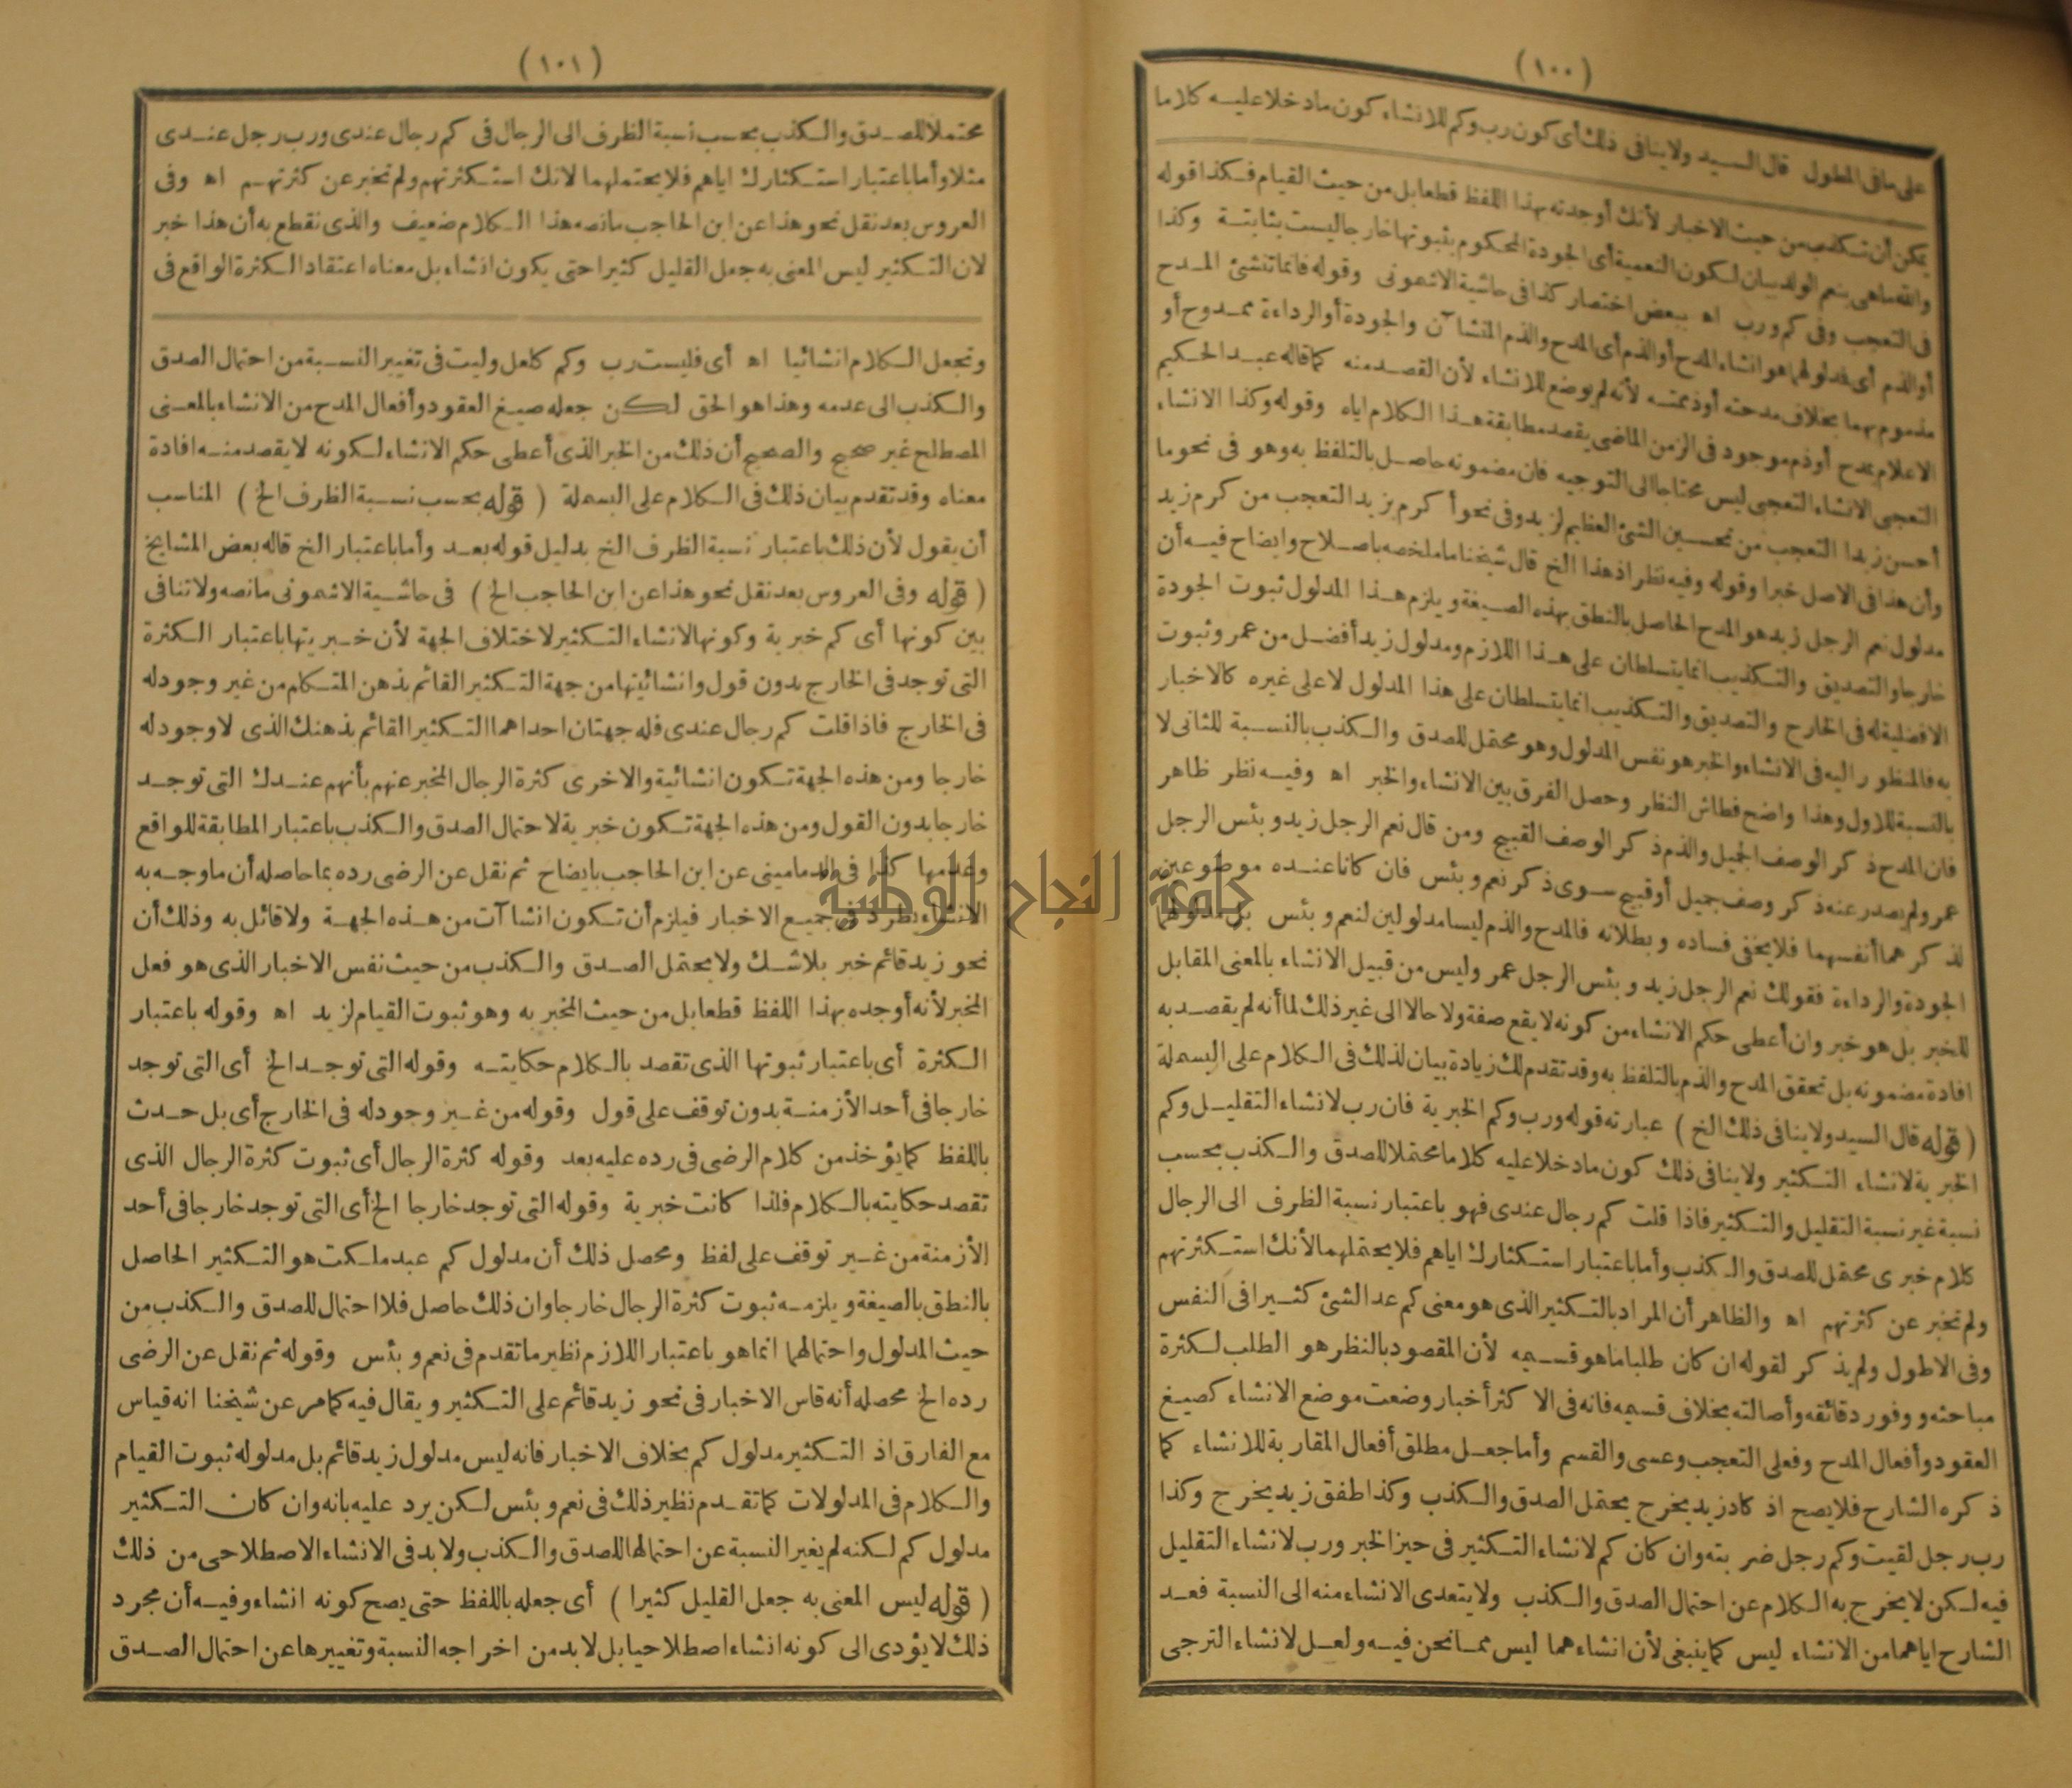 (١٠٠)
على ما فى المطول قال السيد ولا ينافى ذلك أى كون رب وكم للانشاء كون ما دخلا عليه كلاما
يمكن أن تكذبه من حيث الاخبار لأنك أوجدته بهذا اللفظ قطعا بل من حيث القيام فكذا قوله
والله ما هى بنعم الولد بيان لكون النعمية أى الجودة المحكوم بثبوتها خارجا ليست بثابتة وكذا
فى التعجب وفى كم ورب اه ببعض اختصار كذا فى حاشية الاشمونى وقوله فانما تنشئ المدح
أو الذم أى فمدلولهما هو انشاء المدح أو الذم أى المدح والذم المنشآن والجودة أو الرداءة ممدوح أو
مذموم بهما بخلاف مدحته أو ذممته لأنه لم يوضع للانشاء لأن القصد منه كما قاله عبد الحكيم
الاعلام بمدح أو ذم موجود فى الزمن الماضى يقصد مطابقة هذا الكلام اياه وقوله وكذا الانشاء
التعجبى الانشاء التعجبى ليس محتاجا الى التوجيه فان مضمونه حاصل بالتلفظ به وهو فى نحو ما
أحسن زيدا التعجب من تحسين الشئ العظيم لزيد وفى نحو أكرم بزيد التعجب من كرم زيد
وأن هذا فى الاصل خبرا وقوله وفيه نظر اذ هذا الخ قال شيخنا ما ملخصه باصلاح وايضاح فيه أن
مدلول نعم الرجل زيد هو المدح الحاصل بالنطق بهذه الصيغة ويلزم هذا المدلول ثبوت الجودة
خارجا والتصديق والتكذيب انما يتسلطان على هذا اللازم ومدلول زيد أفضل من عمر وثبوت
الافضلية له فى الخارج والتصديق والتكذيب انما يتسلطان على هذا المدلول لا على غيره كالاخبار
به فالمنظور اليه فى الانشاء والخبر هو نفس المدلول وهو محتمل للصدق والكذب بالنسبة للثانى لا
بالنسبة للاول وهذا واضح فطاش النظر وحصل الفرق بين الانشاء والخبر اه وفيه نظر ظاهر
فان المدح ذكر الوصف الجميل والذم ذكر الوصف القبيح ومن قال نعم الرجل زيد وبئس الرجل
عمر ولم يصدر عنه ذكر وصف جميل أو قبيح سوى ذكر نعم وبئس فان كانا عنده موضوعين
لذكرهما أنفسهما فلا يخفى فساده وبطلانه فالمدح والذم ليسا مدلولين لنعم وبئس بل مدلولهما
الجودة والرداءة فقولك نعم الرجل زيد وبئس الرجل عمر وليس من قبيل الانشاء بالمعنى المقابل
للخبر بل هو خبر وان أعطى حكم الانشاء من كونه لا يقع صفة ولا حالا الى غير ذلك لما أنه لم يقصد به
افادة مضمونه بل تحقق المدح والذم بالتلفظ به وقد تقدم لك زيادة بيان لذلك فى الكلام على البسملة
(قوله قال السيد ولا ينافى ذلك الخ) عبارته قوله ورب وكم الخبرية فان رب لانشاء التقليل وكم
الخبرية لانشاء التكثير ولا ينافى ذلك كون ما دخلا عليه كلاما محتملا للصدق والكذب بحسب
نسبة غير نسبة التقليل والتكثير فاذا قلت كم رجال عندى فهو باعتبار نسبة الظرف الى الرجال
كلام خبرى محتمل للصدق والكذب وأما باعتبار استكثارك اياهم فلا يحتملهما لأنك استكثرتهم
ولم تخبر عن كثرتهم اه والظاهر أن المراد بالتكثير الذى هو معنى كم عد الشئ كثيرا فى النفس
وفى الاطول ولم يذكر لقوله ان كان طلبا ما هو قسيمه لأن المقصود بالنظر هو الطلب لكثرة
مباحثه ووفور دقائقه وأصالته بخلاف قسيمه فانه فى الاكثر أخبار وضعت موضع الانشاء كصيغ
العقود وأفعال المدح وفعلى التعجب وعسى والقسم وأما جعل مطلق أفعال المقاربة للانشاء كما
ذكره الشارح فلا يصح اذ كاد زيد يخرج يحتمل الصدق والكذب وكذا طفق زيد يخرج وكذا
رب رجل لقيت وكم رجل ضربته وان كان كم لانشاء التكثير فى حيز الخبر ورب لانشاء التقليل
فيه لكن لا يخرج به الكلام عن احتمال الصدق والكذب ولا يتعدى الانشاء منه الى النسبة فعد
الشارح اياهما من الانشاء ليس كما ينبغى لأن انشاءهما ليس مما نحن فيه ولعل لانشاء الترجى
(١٠١)
محتملا للصدق والكذب بحسب نسبة الظرف الى الرجال فى كم رجال عندى ورب رجل عندى
مثلا وأما باعتبار استكثارك اياهم فلا يحتملهما لانك استكثرتهم ولم تخبر عن كثرتهم اه وفى
العروس بعد نقل نحو هذا عن ابن الحاجب ما نصه هذا الكلام ضعيف والذى نقطع به أن هذا خبر
لان التكثير ليس المعنى به جعل القليل كثيرا حتى يكون انشاء بل معناه اعتقاد الكثرة الواقع فى
وتجعل الكلام انشائيا اه أى فليست رب وكم كلعل وليت فى تغيير النسبة من احتمال الصدق
والكذب الى عدمه وهذا هو الحق لكن جعله صيغ العقود وأفعال المدح من الانشاء بالمعنى
المصطلح غير صحيح والصحيح أن ذلك من الخبر الذى أعطى حكم الانشاء لكونه لا يقصد منه افادة
معناه وقد تقدم بيان ذلك فى الكلام على البسملة (قوله بحسب نسبة الظرف الخ) المناسب
أن يقول لأن ذلك باعتبار نسبة الظرف الخ بدليل قوله بعد وأما باعتبار الخ قاله بعض المشايخ
(قوله وفى العروس بعد نقل نحو هذا عن ابن الحاجب الخ) فى حاشية الاشمونى ما نصه ولا تنافى
بين كونها أى كم خبرية وكونها لانشاء التكثير لاختلاف الجهة لأن خبريتها باعتبار الكثرة
التى توجد فى الخارج بدون قول وانشائيتها من جهة التكثير القائم بذهن المتكلم من غير وجود له
فى الخارج فاذا قلت كم رجال عندى فله جهتان احداهما التكثير القائم بذهنك الذى لا وجود له
خارجا ومن هذه الجهة تكون انشائية والاخرى كثرة الرجال المخبر عنهم بأنهم عندك التى توجد
خارجا بدون القول ومن هذه الجهة تكون خبرية لاحتمال الصدق والكذب باعتبار المطابقة للواقع
وعدمها كذا فى الدمامينى عن ابن الحاجب بايضاح ثم نقل عن الرضى رده بما حاصله أن ما وجه به
الانشاء يطرد فى جميع الاخبار فيلزم أن تكون انشاآت من هذه الجهة ولا قائل به وذلك أن
نحو زيد قائم خبر بلا شك ولا يحتمل الصدق والكذب من حيث نفس الاخبار الذى هو فعل
المخبر لأنه أوجده بهذا اللفظ قطعا بل من حيث المخبر به وهو ثبوت القيام لزيد اه وقوله باعتبار
الكثرة أى باعتبار ثبوتها الذى تقصد بالكلام حكايته وقوله التى توجد الخ أى التى توجد
خارجا فى أحد الأزمنة بدون توقف على قول وقوله من غير وجود له فى الخارج أى بل حدث
باللفظ كما يؤخذ من كلام الرضى فى رده عليه بعد وقوله كثرة الرجال أى ثبوت كثرة الرجال الذى
تقصد حكايته بالكلام فلذا كانت خبرية وقوله التى توجد خارجا الخ أى التى توجد خارجا فى أحد
الأزمنة من غير توقف على لفظ ومحصل ذلك أن مدلول كم عبد ملكت هو التكثير الحاصل
بالنطق بالصيغة ويلزمه ثبوت كثرة الرجال خارجا وان ذلك حاصل فلا احتمال للصدق والكذب من
حيث المدلول واحتمالهما انما هو باعتبار اللازم نظير ما تقدم فى نعم وبئس وقوله ثم نقل عن الرضى
رده الخ محصله أنه قاس الاخبار فى نحو زيد قائم على التكثير ويقال فيه كما مر عن شيخنا انه قياس
مع الفارق اذ التكثير مدلول كم بخلاف الاخبار فانه ليس مدلول زيد قائم بل مدلوله ثبوت القيام
والكلام فى المدلولات كما تقدم نظير ذلك فى نعم وبئس لكن يرد عليه بانه وان كان التكثير
مدلول كم لكنه لم يغير النسبة عن احتمالها للصدق والكذب ولا بد فى الانشاء الاصطلاحى من ذلك
(قوله ليس المعنى به جعل القليل كثيرا) أى جعله باللفظ حتى يصح كونه انشاء وفيه أن مجرد
ذلك لا يؤدى الى كونه انشاء اصطلاحيا بل لا بد من اخراجه النسبة وتغييرها عن احتمال الصدق
جامعة النجاح الوطنية